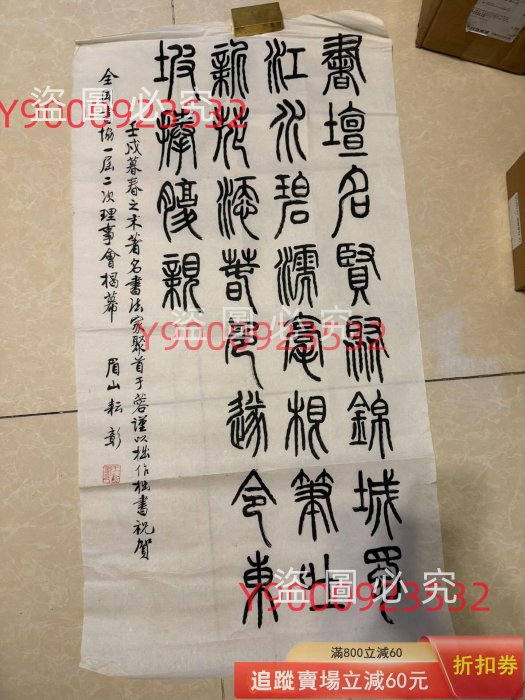 書壇名賢聚錦城蜀
江水碧濡毫筆生
新花添春色遂令東
坡親
壬戌暮春之末著名書法家聚首于蓉謹以拙作拙書祝賀
全國書協一屆二次理事會揭幕 眉山耘彰
盜圖必究
Y9000923532
盜圖必究
Y9000923532
盜圖必究
Y9000923532
滿800立減60
追蹤賣場立減60元
折扣券